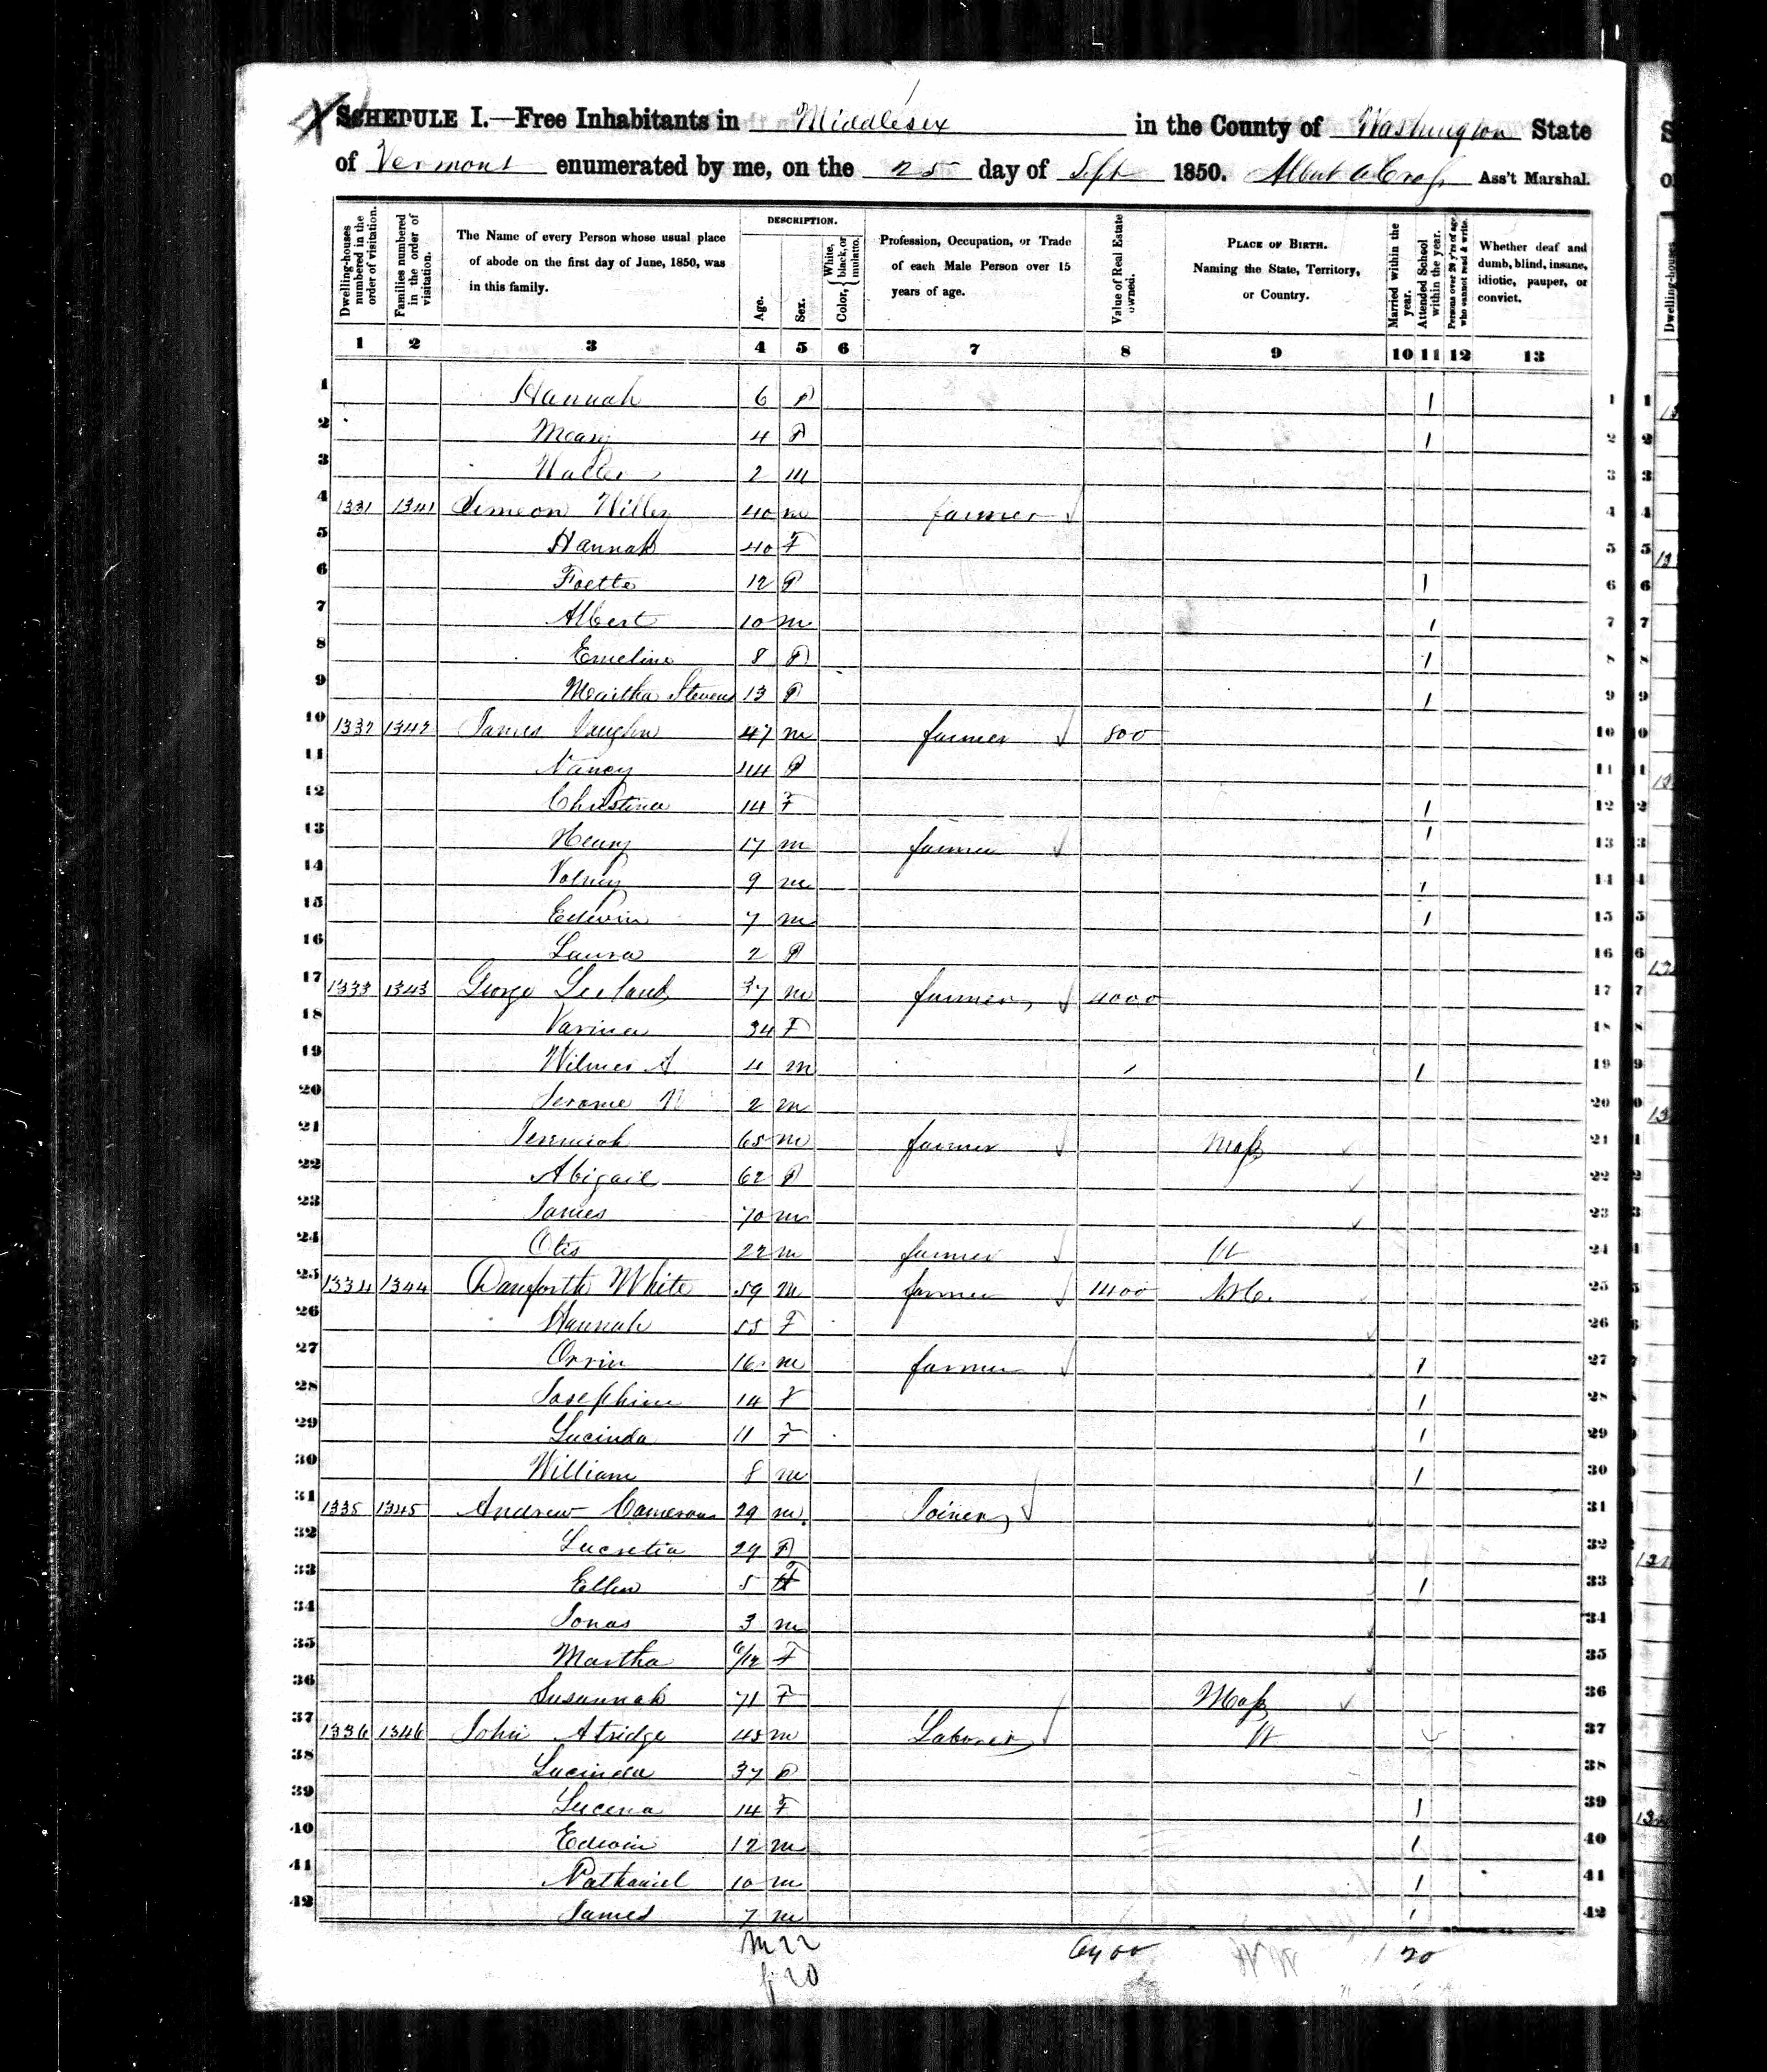 SCHEDULE I.—Free Inhabitants in Middlesex in the County of Washington State
of Vermont enumerated by me, on the 25 day of Sept 1850. Albert Ass't Marshal.
Dwelling-houses numbered in the order of visitation.
Families numbered in the order of visitation.
The Name of every Person whose usual place of abode on the first day of June, 1850, was in this family.
DESCRIPTION.
Age.
Sex.
Color, { White, black, or mulatto.
Profession, Occupation, or Trade of each Male Person over 15 years of age.
Value of Real Estate owned.
PLACE OF BIRTH. Naming the State, Territory, or Country.
Married within the year.
Attended School within the year.
Persons over 20 y'rs of age who cannot read & write.
Whether deaf and dumb, blind, insane, idiotic, pauper, or convict.
1 2 3 4 5 6 7 8 9 10 11 12 13
1 Hannah 6 F 1 1
2 Mary 4 F 1 2
3 2 m 3
4 1331 1341 Simeon 40 m farmer 4
5 Hannah 40 F 5
6 12 F 1 6
7 Albert 10 m 1 7
8 Emeline 8 F 1 8
9 Martha Stevens 13 F 1 9
10 1332 1342 James 47 m farmer 800 10
11 Nancy 44 F 11
12 Christina 14 F 1 12
13 Henry 17 m farmer 1 13
14 Volney 9 m 1 14
15 Edwin 7 m 1 15
16 Laura 2 F 16
17 1333 1343 George Leeland 37 m farmer 4000 17
18 34 F 18
19 Wilmer A 4 m 1 19
20 Jerome 2 m 20
21 Jeremiah 65 m farmer Mass 21
22 Abigail 62 F 22
23 James 70 m 23
24 Otis 22 m farmer Vt 24
25 1334 1344 Danforth White 59 m farmer 1400 25
26 Hannah 55 F 26
27 Orrin 16 m farmer 1 27
28 Josephine 14 F 1 28
29 Lucinda 11 F 1 29
30 William 8 m 1 30
31 1335 1345 Andrew Cameron 29 m Joiner 31
32 Lucretia 29 F 32
33 Ellen 5 F 1 33
34 Jonas 3 m 34
35 Martha 6/12 F 35
36 Susannah 71 F Mass 36
37 1336 1346 John Atridge 45 m Laborer Vt 37
38 Lucinda 37 F 38
39 Lucena 14 F 1 39
40 Edwin 12 m 1 40
41 Nathaniel 10 m 1 41
42 James 7 m 1 42
m 22
f 20
20